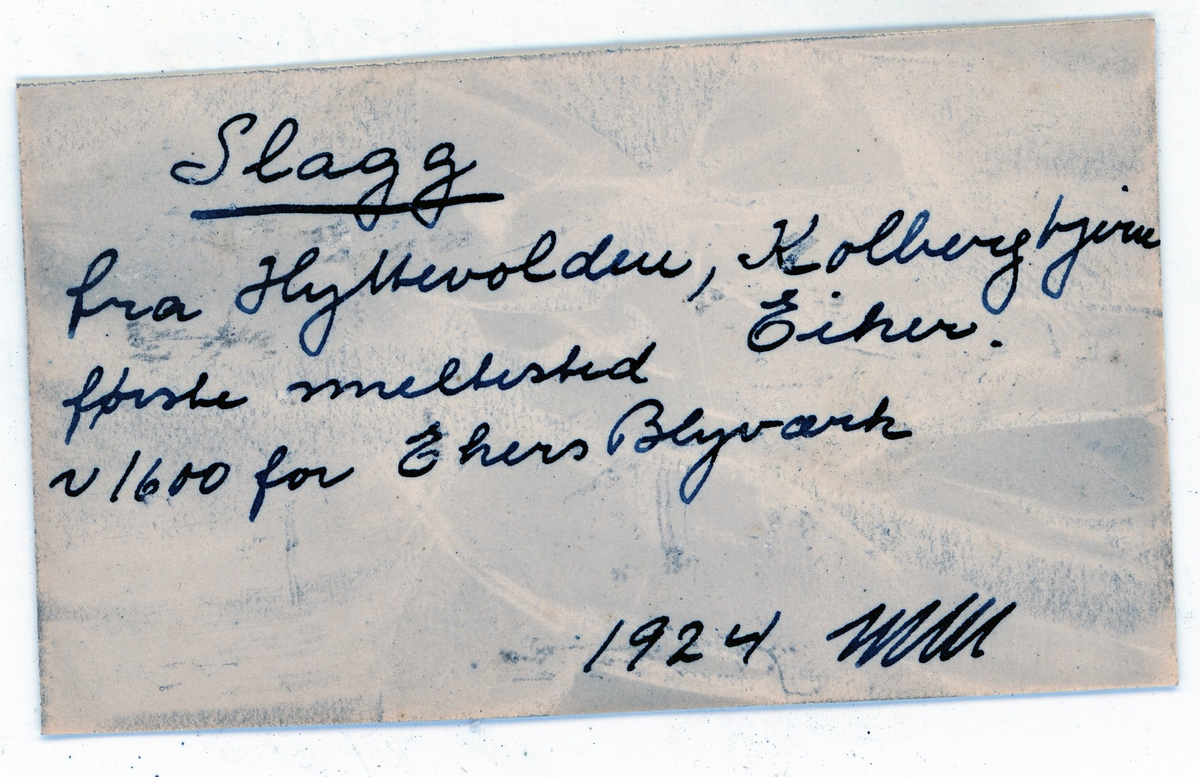 Slagg
fra Hyttevolden, Kolbergtjern
Eiker.
første smeltested
v 1600 for Ekers Blyværk
1924